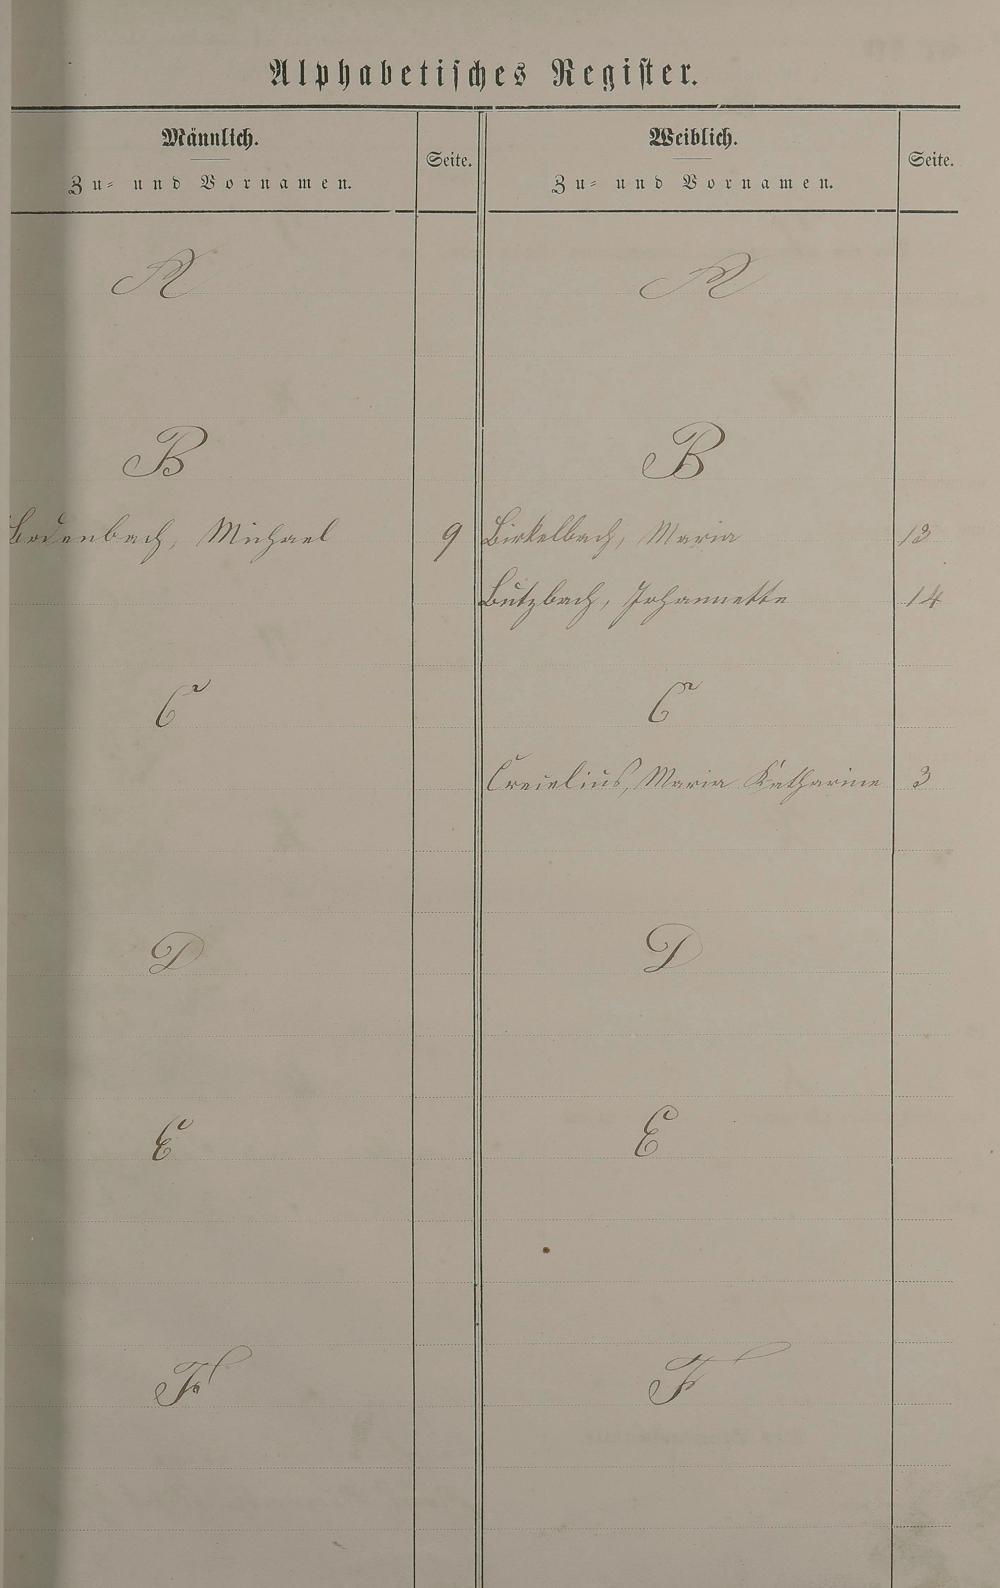 Alphabetisches Register.
Männlich. Seite. Weiblich. Seite.
Zu- und Vornamen. Zu- und Vornamen.
A A
B B
Bodenbach, Michael 9 Birkelbach, Maria 13
Butzbach, Johannette 14
C C
Crecelius, Maria Katharine 3
D D
E E
F F